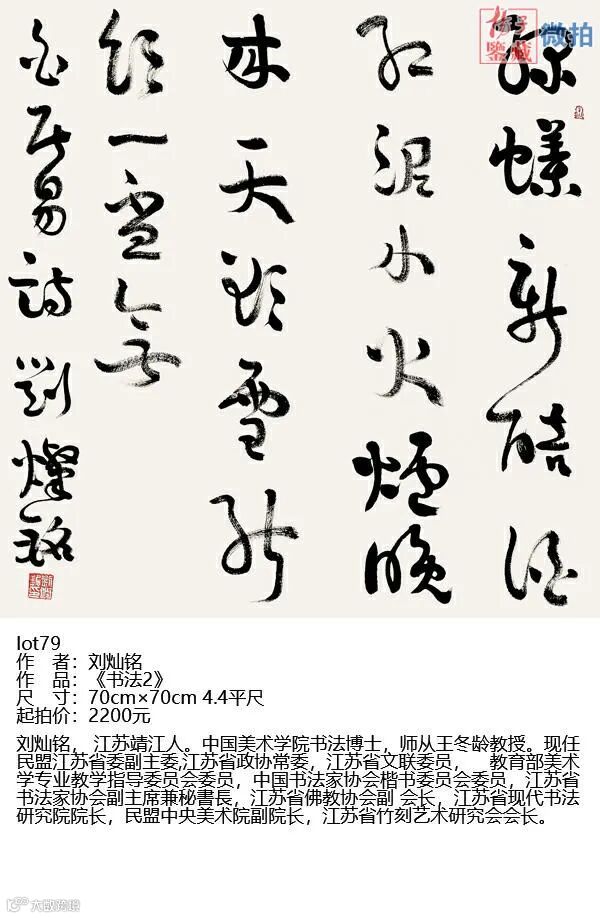 綠蟻新醅酒
紅泥小火爐晚
來天欲雪能
飲一盃無
白居易詩 劉燦銘
鑒藏 微拍
lot79
作 者：刘灿铭
作 品：《书法2》
尺 寸：70cm×70cm 4.4平尺
起拍价：2200元
刘灿铭， 江苏靖江人。中国美术学院书法博士，师从王冬龄教授。现任
民盟江苏省委副主委,江苏省政协常委，江苏省文联委员， 教育部美术
学专业教学指导委员会委员，中国书法家协会楷书委员会委员，江苏省
书法家协会副主席兼秘書長，江苏省佛教协会副 会长，江苏省现代书法
研究院院长，民盟中央美术院副院长，江苏省竹刻艺术研究会会长。
大数跨境